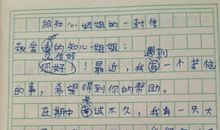 给知心姐姐的一封信
敬爱的知心姐姐：
您好！最近，我遇到一个苦恼
的事，希望得到你的帮助。
在期中考试不久，我有一天大